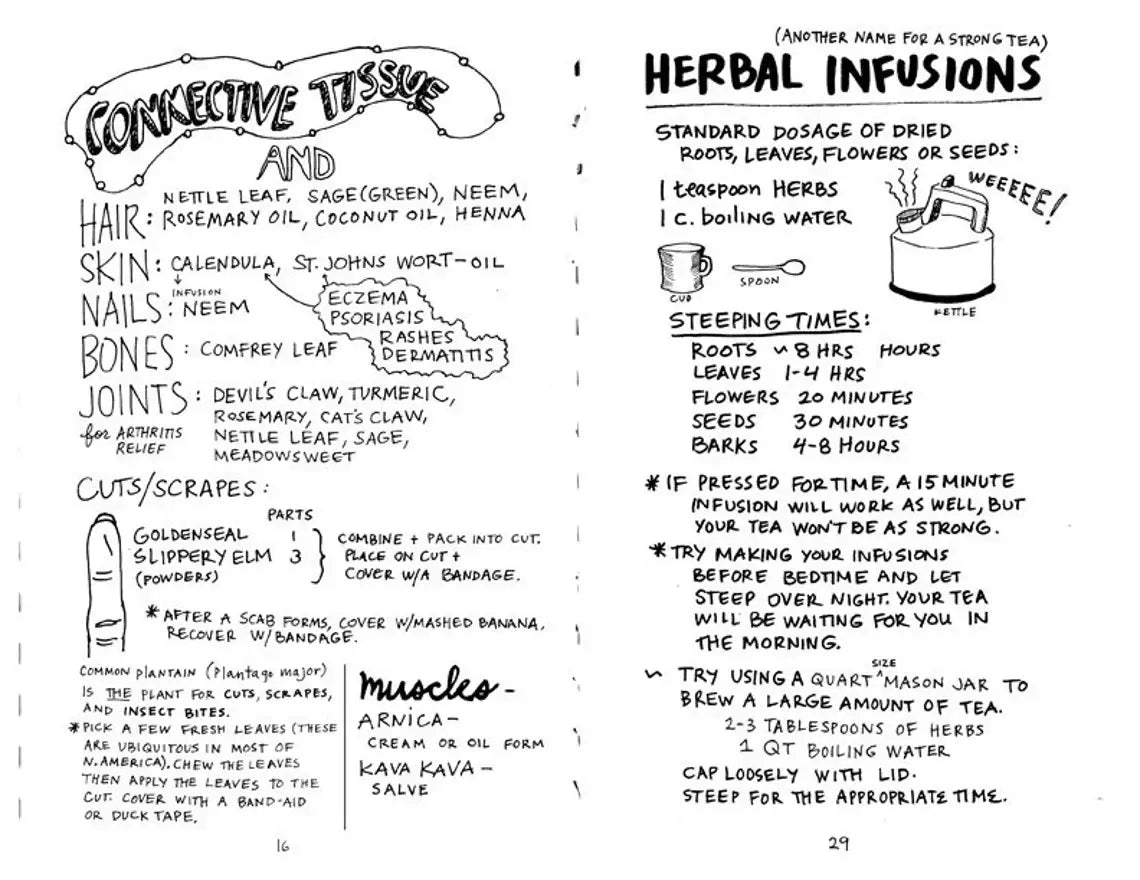 CONNECTIVE TISSUE
AND
HAIR: NETTLE LEAF, SAGE(GREEN), NEEM,
ROSEMARY OIL, COCONUT OIL, HENNA
SKIN: CALENDULA, ST. JOHNS WORT-OIL
INFUSION
NAILS: NEEM
ECZEMA
PSORIASIS
RASHES
DERMATITIS
BONES: COMFREY LEAF
JOINTS: DEVIL'S CLAW, TURMERIC,
for ARTHRITIS
RELIEF
ROSEMARY, CAT'S CLAW,
NETTLE LEAF, SAGE,
MEADOWSWEET
CUTS/SCRAPES:
PARTS
GOLDENSEAL 1
SLIPPERY ELM 3
(POWDERS)
COMBINE + PACK INTO CUT.
PLACE ON CUT +
COVER W/A BANDAGE.
* AFTER A SCAB FORMS, COVER W/MASHED BANANA,
RECOVER W/BANDAGE.
COMMON PLANTAIN (Plantago major)
IS THE PLANT FOR CUTS, SCRAPES,
AND INSECT BITES.
* PICK A FEW FRESH LEAVES (THESE
ARE UBIQUITOUS IN MOST OF
N. AMERICA). CHEW THE LEAVES
THEN APPLY THE LEAVES TO THE
CUT. COVER WITH A BAND-AID
OR DUCK TAPE.
muscles-
ARNICA-
CREAM OR OIL FORM
KAVA KAVA-
SALVE
16
(ANOTHER NAME FOR A STRONG TEA)
HERBAL INFUSIONS
STANDARD DOSAGE OF DRIED
ROOTS, LEAVES, FLOWERS OR SEEDS:
1 teaspoon HERBS
1 c. boiling WATER
WEEEEE!
CUP
SPOON
KETTLE
STEEPING TIMES:
ROOTS ~ 8 HRS HOURS
LEAVES 1-4 HRS
FLOWERS 20 MINUTES
SEEDS 30 MINUTES
BARKS 4-8 HOURS
* IF PRESSED FOR TIME, A 15 MINUTE
INFUSION WILL WORK AS WELL, BUT
YOUR TEA WON'T BE AS STRONG.
* TRY MAKING YOUR INFUSIONS
BEFORE BEDTIME AND LET
STEEP OVER NIGHT. YOUR TEA
WILL BE WAITING FOR YOU IN
THE MORNING.
~ TRY USING A QUART ^SIZE MASON JAR TO
BREW A LARGE AMOUNT OF TEA.
2-3 TABLESPOONS OF HERBS
1 QT BOILING WATER
CAP LOOSELY WITH LID.
STEEP FOR THE APPROPRIATE TIME.
29